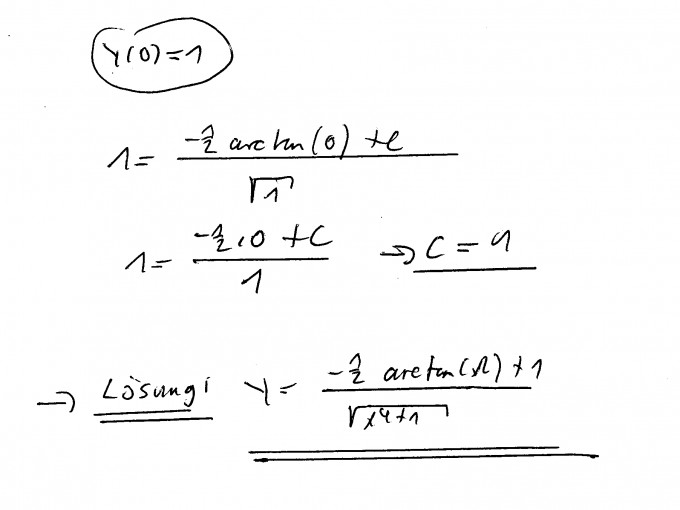 y(0)=1
1 = (-1/2 arctan(0) + C) / √1
1 = (-1/2 · 0 + C) / 1 → C = 1
→ Lösung: y = (-1/2 arctan( ) + 1) / √(x^4+1)